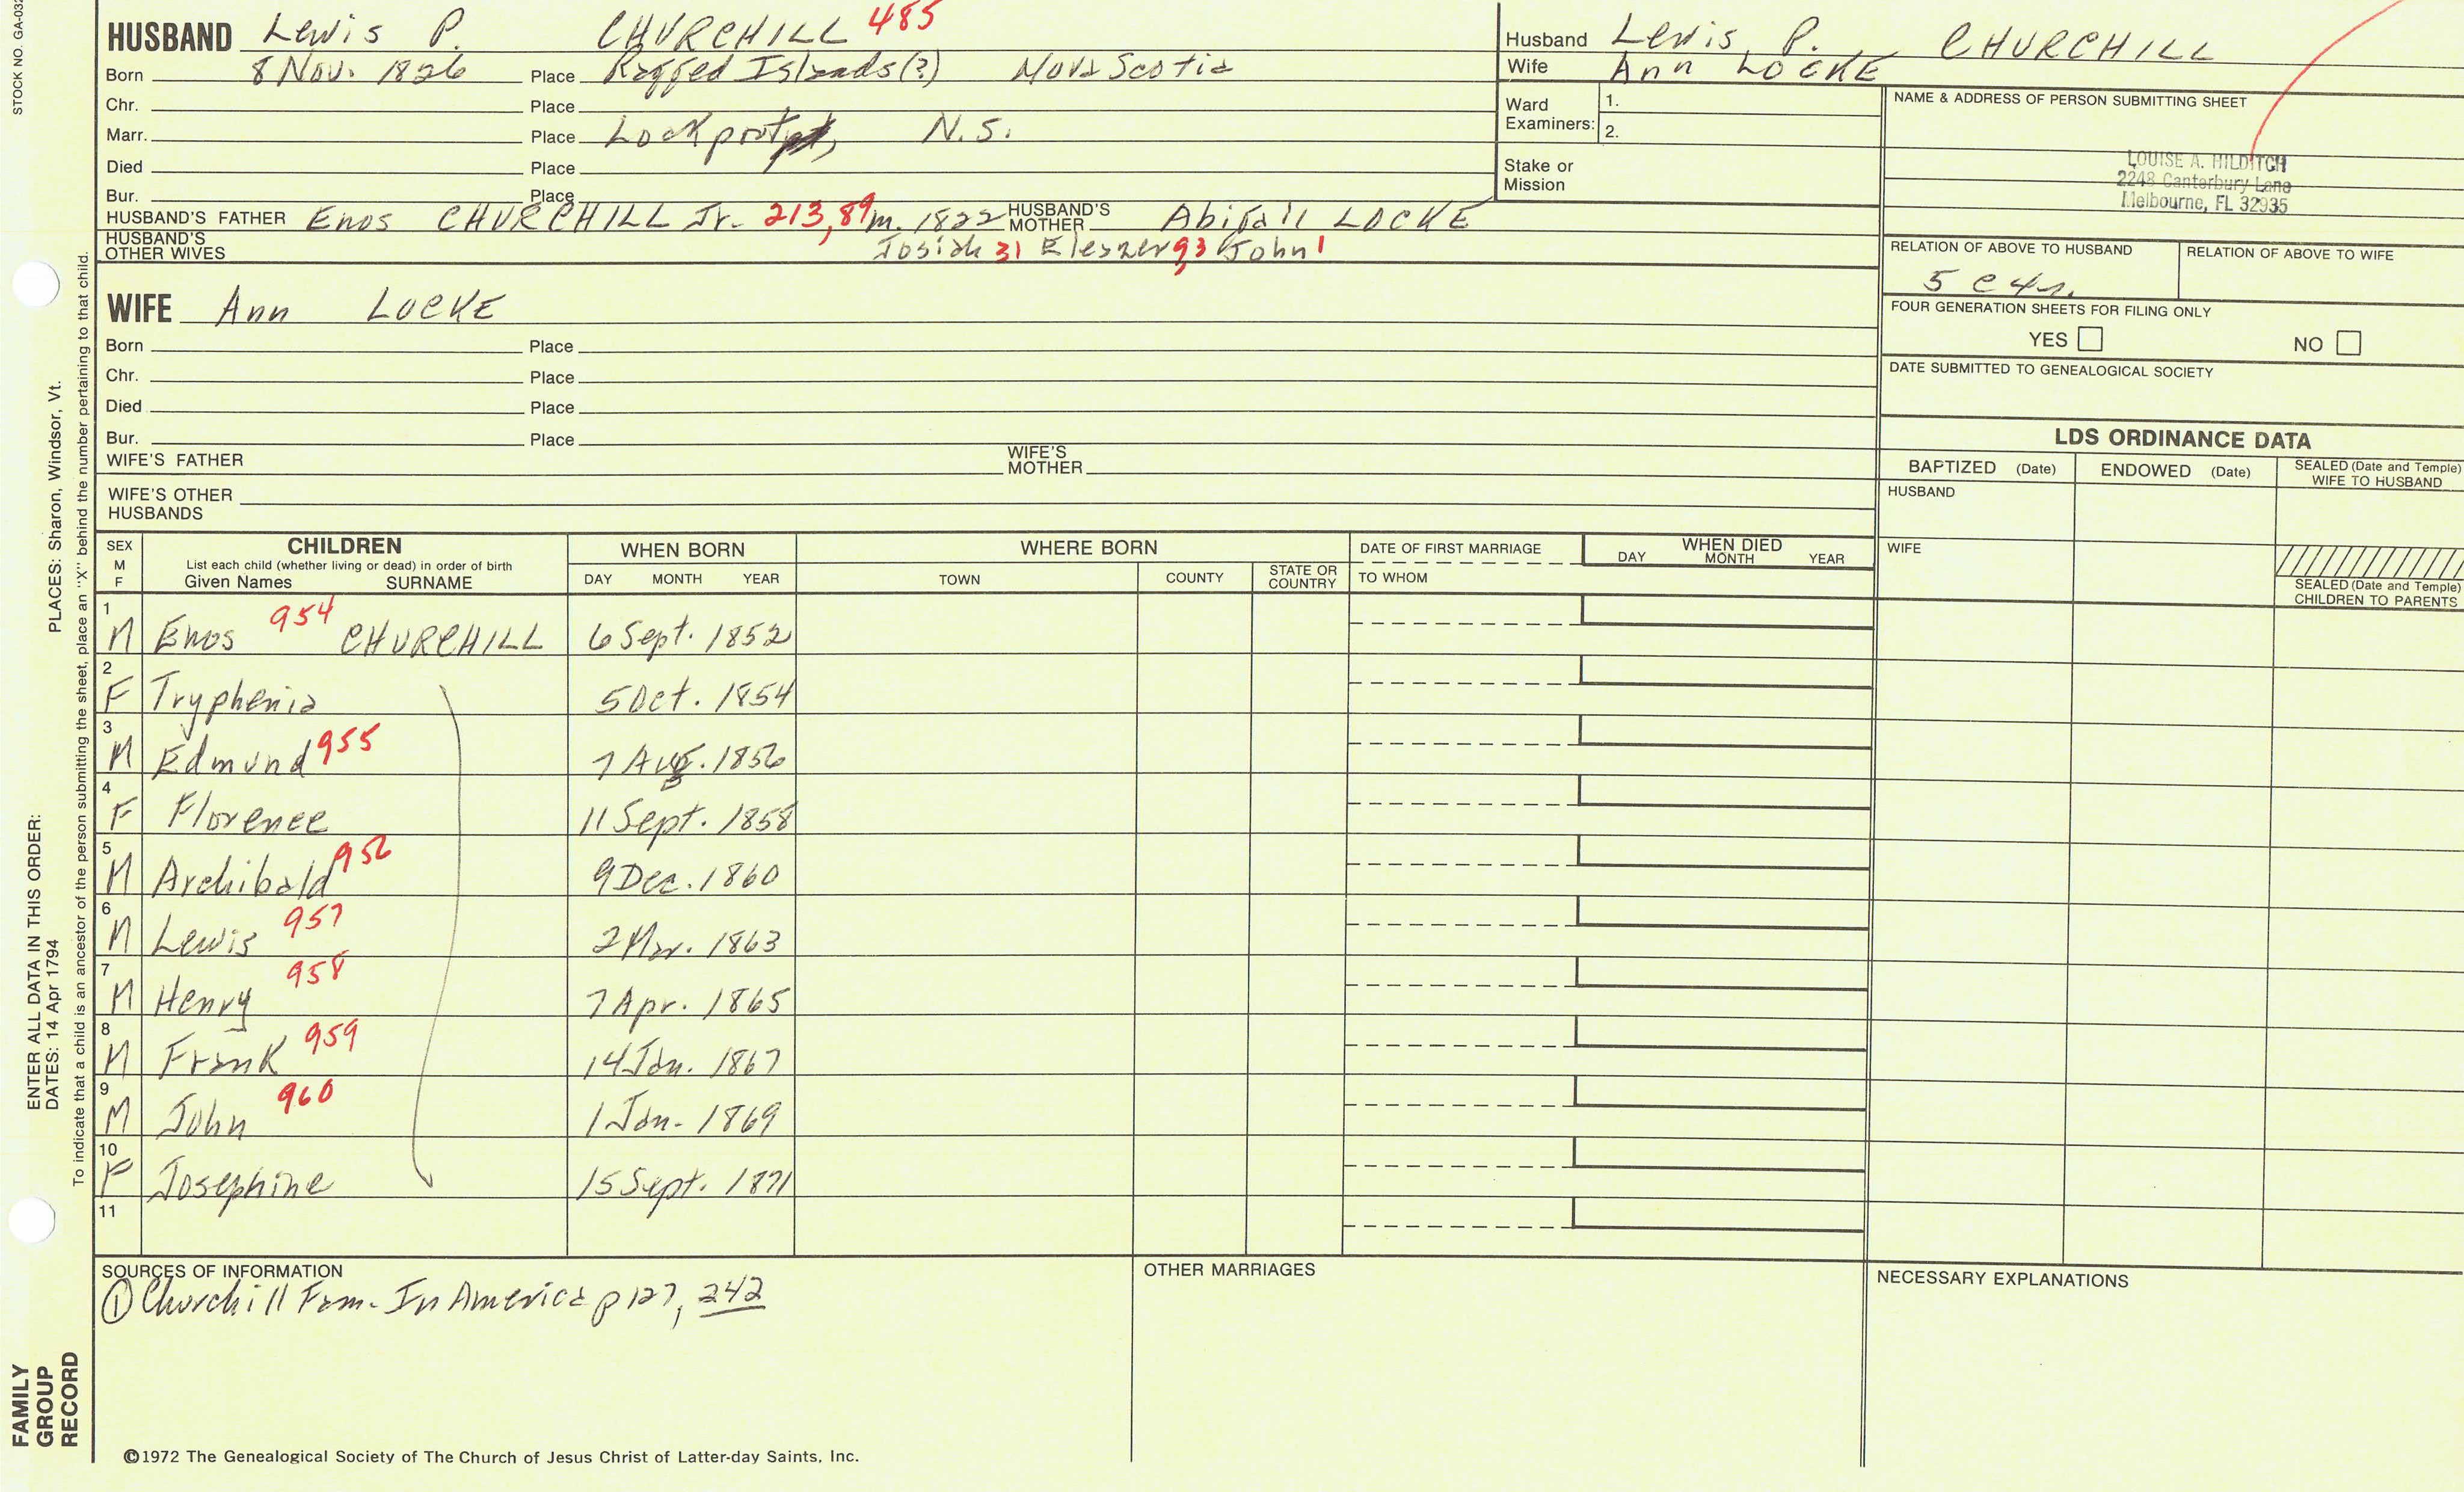 STOCK NO. GA-032
HUSBAND Lewis P. CHURCHILL 485
Born 8 Nov. 1826 Place Ragged Islands(?) Nova Scotia
Chr. Place
Marr. Place Lockprot, N.S.
Died Place
Bur. Place
HUSBAND'S FATHER Enos CHURCHILL Jr. 213,89 m. 1822 HUSBAND'S MOTHER Abigail LOCKE
HUSBAND'S OTHER WIVES Josiah 31 Eleazer 93 John 1
WIFE Ann LOCKE
Born Place
Chr. Place
Died Place
Bur. Place
WIFE'S FATHER WIFE'S MOTHER
WIFE'S OTHER HUSBANDS
Husband Lewis P. CHURCHILL
Wife Ann LOCKE
Ward Examiners: 1.
2.
Stake or Mission
NAME & ADDRESS OF PERSON SUBMITTING SHEET
LOUISE A. HILDITCH
2248 Canterbury Lane
Melbourne, FL 32935
RELATION OF ABOVE TO HUSBAND RELATION OF ABOVE TO WIFE
5 c 4r.
FOUR GENERATION SHEETS FOR FILING ONLY
YES NO
DATE SUBMITTED TO GENEALOGICAL SOCIETY
LDS ORDINANCE DATA
BAPTIZED (Date) ENDOWED (Date) SEALED (Date and Temple) WIFE TO HUSBAND
HUSBAND
WIFE
SEALED (Date and Temple) CHILDREN TO PARENTS
SEX M F CHILDREN WHEN BORN WHERE BORN DATE OF FIRST MARRIAGE WHEN DIED
List each child (whether living or dead) in order of birth
Given Names SURNAME DAY MONTH YEAR TOWN COUNTY STATE OR COUNTRY TO WHOM DAY MONTH YEAR
1 M Enos 954 CHURCHILL 6 Sept. 1852
2 F Tryphenia 5 Oct. 1854
3 M Edmund 955 7 Aug. 1856
4 F Florence 11 Sept. 1858
5 M Archibald 956 9 Dec. 1860
6 M Lewis 957 2 Mar. 1863
7 M Henry 958 7 Apr. 1865
8 M Frank 959 14 Jan. 1867
9 M John 960 1 Jan. 1869
10 F Josephine 15 Sept. 1871
11
SOURCES OF INFORMATION OTHER MARRIAGES NECESSARY EXPLANATIONS
① Churchill Fam. In America p 127, 242
©1972 The Genealogical Society of The Church of Jesus Christ of Latter-day Saints, Inc.
ENTER ALL DATA IN THIS ORDER:
DATES: 14 Apr 1794 PLACES: Sharon, Windsor, Vt.
To indicate that a child is an ancestor of the person submitting the sheet, place an "X" behind the number pertaining to that child.
FAMILY
GROUP
RECORD